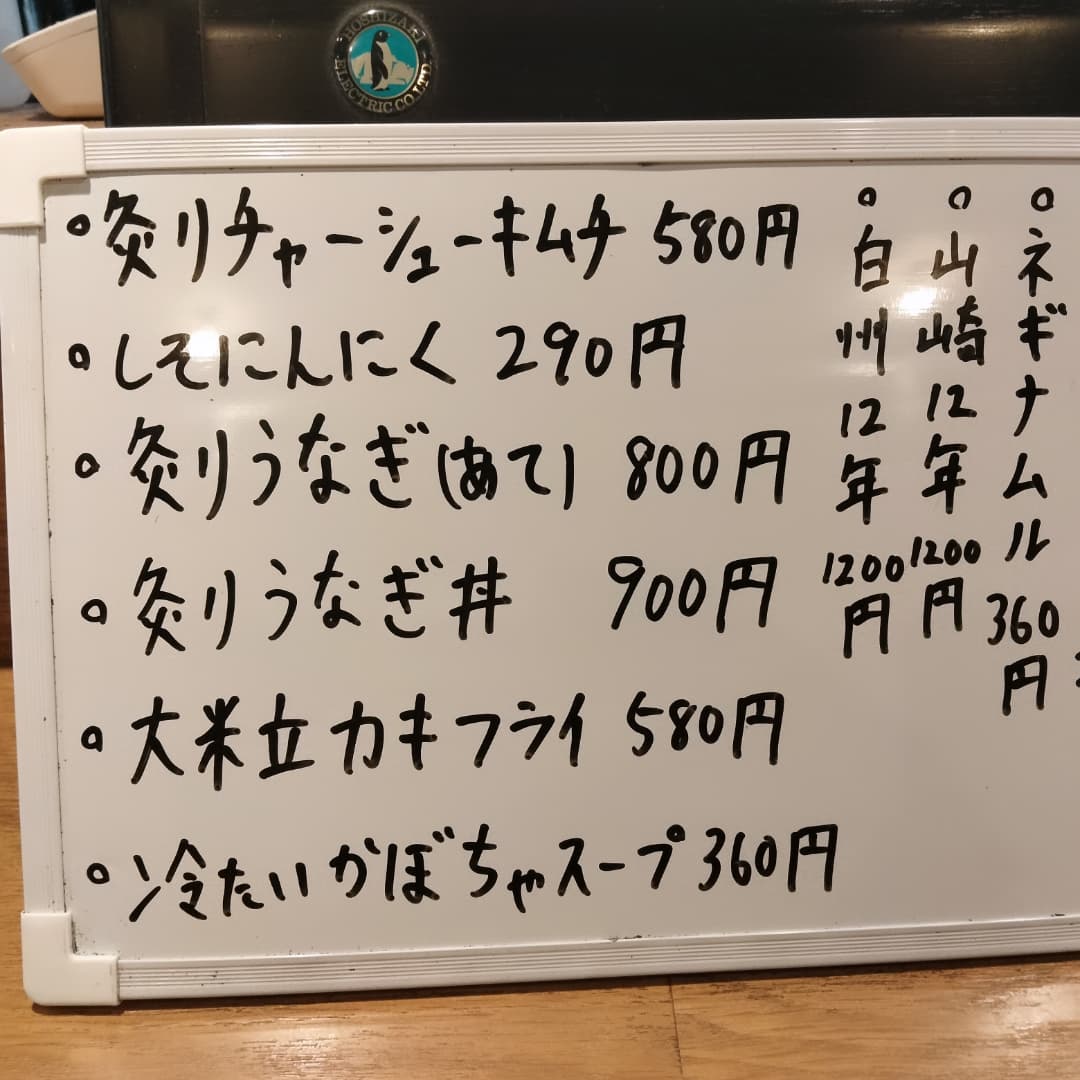 HOSHIZAKI ELECTRIC CO.LTD.
◦炙りチャーシューキムチ 580円
◦しそにんにく 290円
◦炙りうなぎ(あて) 800円
◦炙りうなぎ丼 900円
◦大粒カキフライ 580円
◦冷たいかぼちゃスープ 360円
◦ネギナムル 360円
◦山崎12年 1200円
◦白州12年 1200円